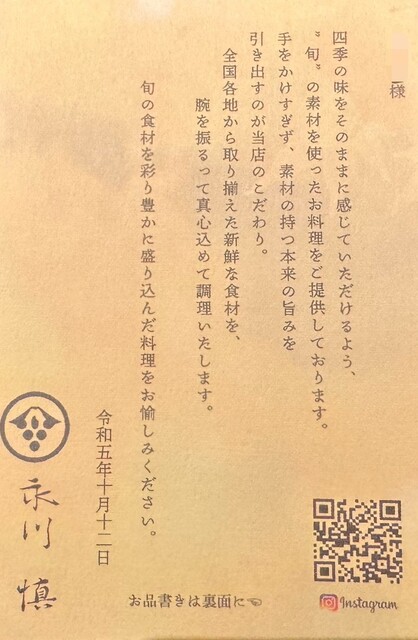 様
四季の味をそのままに感じていただけるよう、
〝旬〟の素材を使ったお料理をご提供しております。
手をかけすぎず、素材の持つ本来の旨みを
引き出すのが当店のこだわり。
全国各地から取り揃えた新鮮な食材を、
腕を振るって真心込めて調理いたします。
旬の食材を彩り豊かに盛り込んだ料理をお愉しみください。
令和五年十月十二日
永川 慎
お品書きは裏面に☜
Instagram